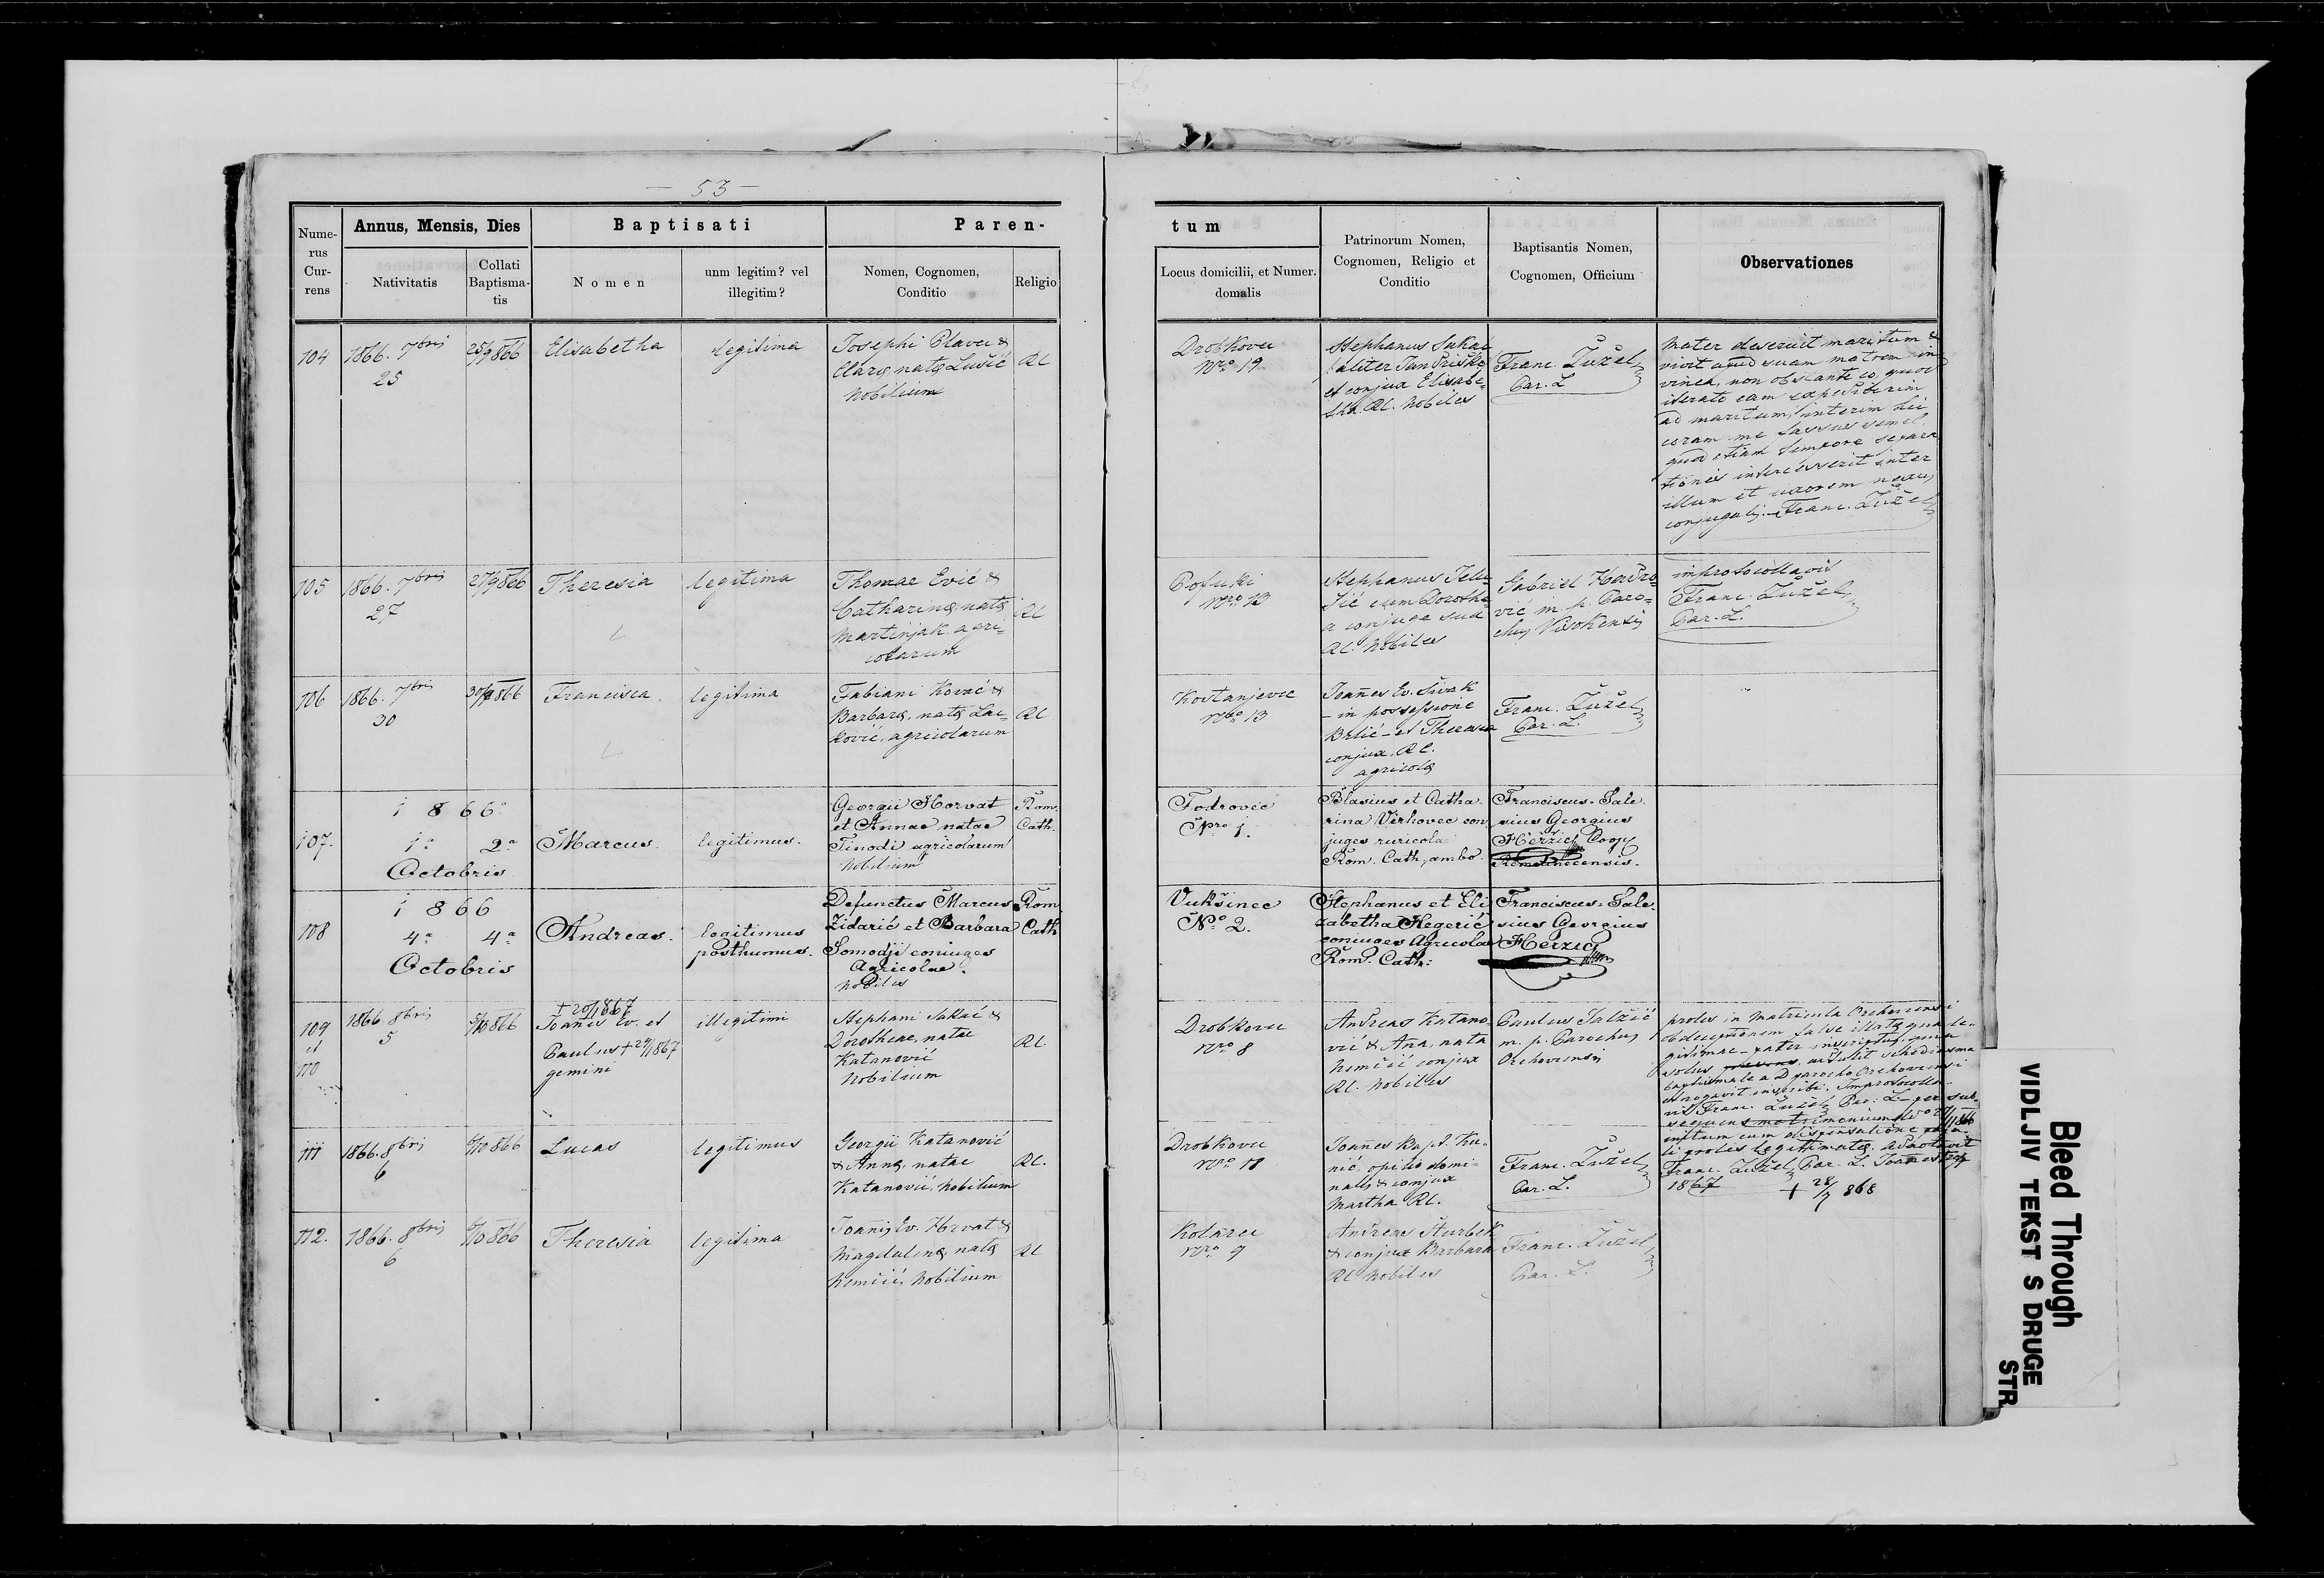 — 53 —
Nume-
rus
Cur-
rens
Annus, Mensis, Dies
Nativitatis
Collati
Baptisma-
tis
Baptisati
Nomen
unm legitim? vel
illegitim?
Paren-
Nomen, Cognomen,
Conditio
Religio
tum
Locus domicilii, et Numer.
domalis
Patrinorum Nomen,
Cognomen, Religio et
Conditio
Baptisantis Nomen,
Cognomen, Officium
Observationes
104
1866. 7bris
25
25/9 866
Elisabetha
legitima
Josephi Plavec &
Claræ, natæ Lušić
Nobilium
RC
Drobkovec
Nro 19
Stephanus Sakač
et conjux Elisabe-
tha RC. Nobiles
Franc. Žužel
Par. L.
Mater deseruit maritum &
vivit apud suam matrem in
vinea, non obstante eo, quod
iterato eam expediverim
ad maritum, interim hic
coram me fassus semel
quod etiam tempore separa
tionis intercesserit inter
illum et uxorem nexus
conjugalis. Franc. Žužel
105
1866. 7bris
27
27/9 866
Theresia
legitima
Thomae Ević &
Catharinæ, natæ
Martinjak agri-
colarum
RC
Nro 13
Stephanus
cum Dorothe
a conjuge sua
RC. Nobiles
Gabriel
vić m. p. Paro-
chus Visokensis
improtocollavit
Franc. Žužel
Par. L.
106
1866. 7bris
30
30/9 866
Francisca
legitima
Fabiani Kovač &
Barbaræ, natæ Lac-
ković, agricolarum
RC
Kostanjevec
Nro 13
Joannes Ev. Sivak
- in possessione
Brlić - et Theresia
conjux. RC.
agricolæ
Franc. Žužel
Par. L.
107.
1866.
1a 2a
Octobris
Marcus.
legitimus.
Georgii Horvat
et Annae natae
Tinodi agricolarum
Nobilium
Rom.
Cath.
Fodrovec
Nro 1.
Blasius et Catha-
rina Verhovec con
juges ruricolae
Rom. Cath. ambo.
Franciscus Sale
sius Georgius
Herzich Coop.
Remetinecensis.
108
1866
4a 4a
Octobris
Andreas.
legitimus
posthumus.
Defunctus Marcus
Židarić et Barbara
Somodji coniuges
Agricolae.
Nobiles
Rom
Cath
Vukšinec
No 2.
Stephanus et Eli
zabetha Hegerić
coniuges Agricolae
Rom. Cath:
Franciscus Sale-
sius Georgius
Herzig
109
et
110
1866. 8bris
5
5/10 866
+ 20/1 867
Joanes Ev. et
Paulus + 24/1 867
gemini
illegitimi
Stephani Sakač &
Dorotheae, natae
Katanović
Nobilium
RC.
Drobkovec
Nro 8
Andreas Katano-
vić & Ana, nata
Nemčić conjux
RC. Nobiles
Paulus
m. p. Parochus
Orehovensis
proles in matricula Orehovensi
solus
baptismale a D. parocho Orehovensi
et rogavit inscribi. Improtocolla-
vit Franc. Žužel Par. L. per sub-
sequens matrimonium
initum cum dispensatione
Franc. Žužel Par. L.
1867
111
1866. 8bris
6
6/10 866
Lucas
legitimus
Georgii Katanović
& Annæ, natae
Katanović, Nobilium
RC.
Drobkovec
Nro 11
Joannes Bapt. Ku-
nić, opilio domi-
nalis & conjux
Martha RC.
Franc. Žužel
Par. L.
+ 28/7 868
112.
1866. 8bris
6
6/10 866
Theresia
legitima
Joannis Ev. Hrvat &
Magdalenæ, natæ
Nemčić, Nobilium
RC
Kolarec
Nro 9
Andreas Šturbek
& conjux Barbara
RC Nobiles
Franc. Žužel
Par. L.
Bleed Through
VIDLJIV TEKST S DRUGE
STR